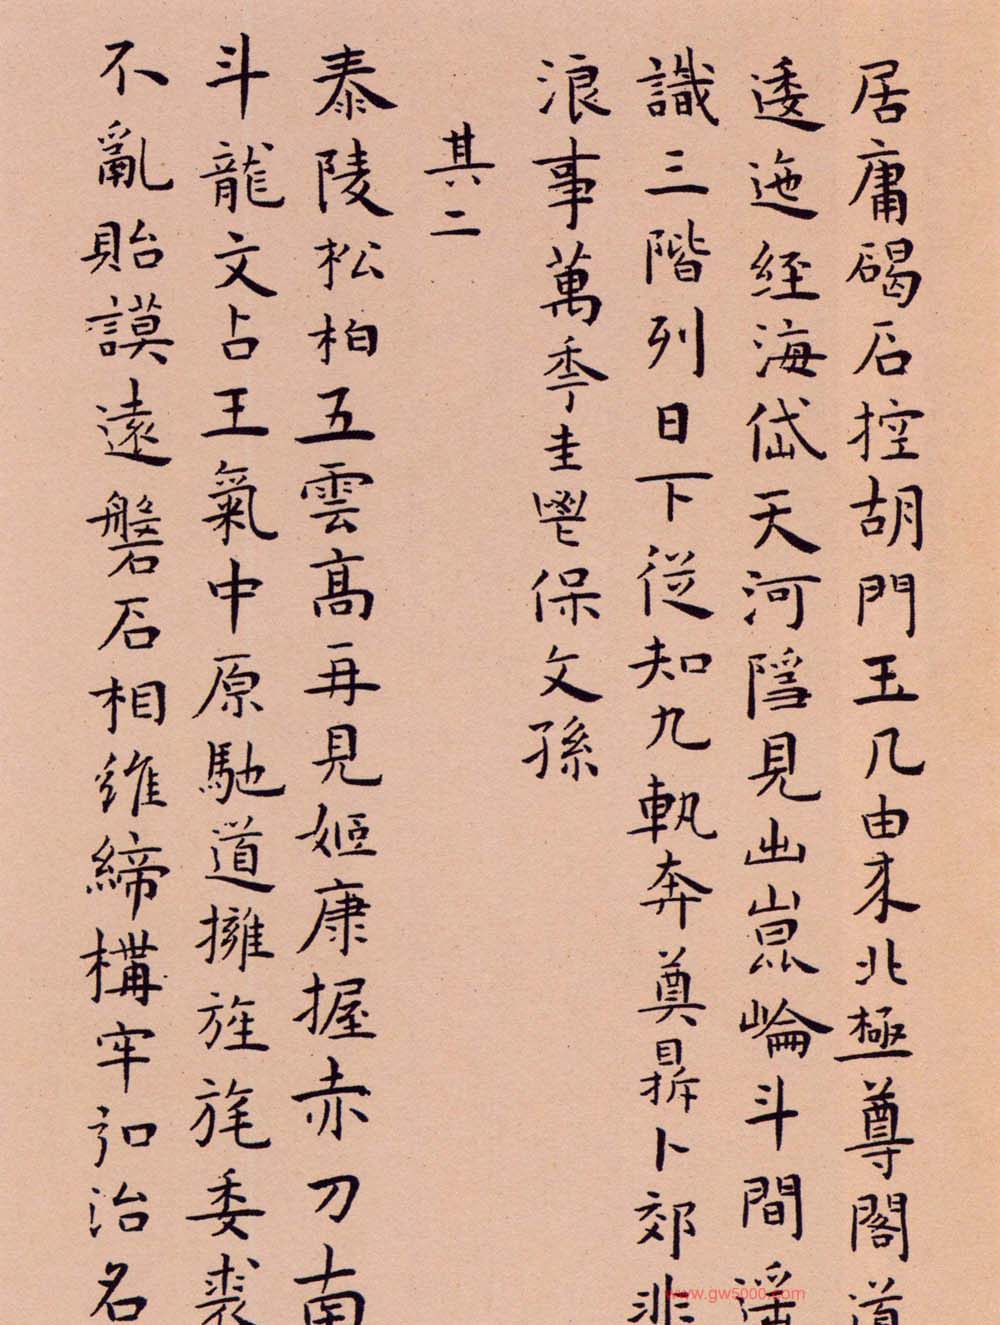 居庸碣石控胡門玉几由来北極尊閣道
逶迤經海岱天河隱見出崑崙斗間遥
識三階列日下從知九軌奔奠鼎卜郊非
浪事萬季圭鬯保文孫
其二
泰陵松柏五雲高再見姬康握赤刀南
斗龍文占王氣中原馳道擁旌旄委裘
不亂貽謨遠磐石相維締構牢訒治名
www.gw5000.com